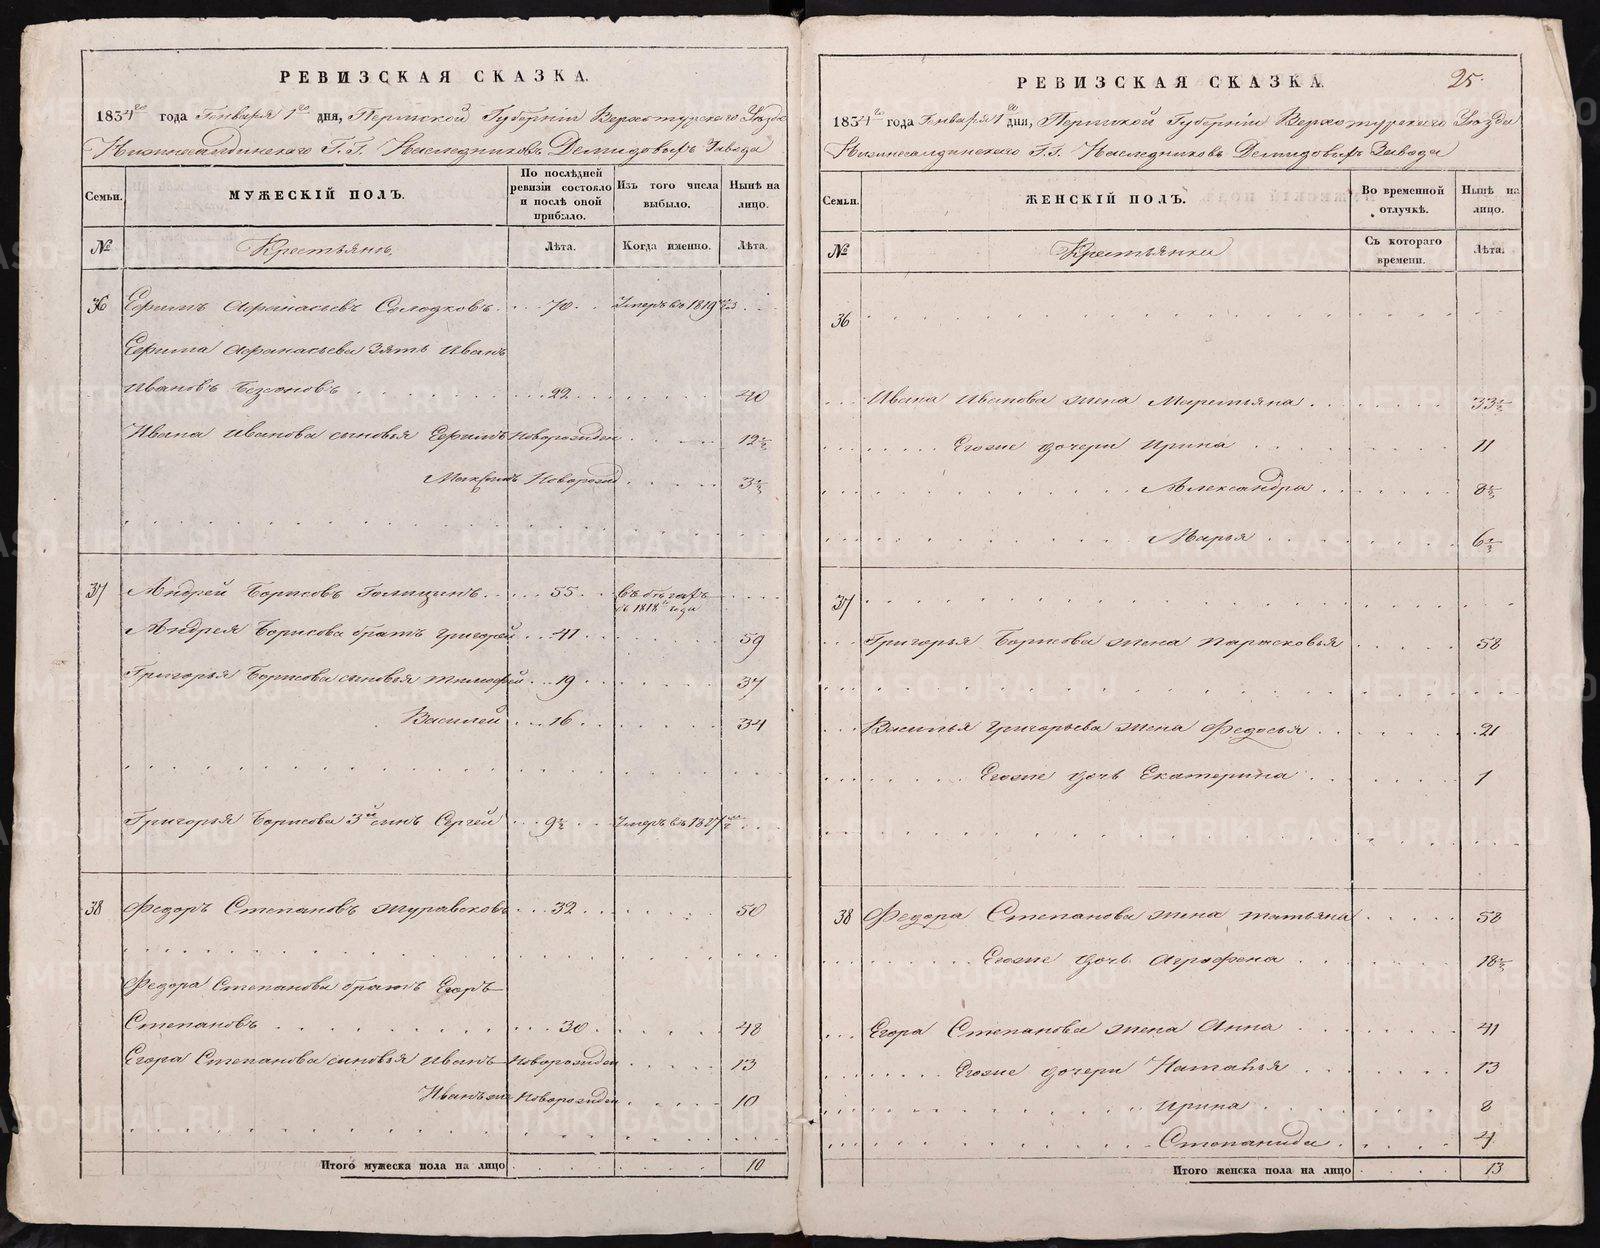 РЕВИЗСКАЯ СКАЗКА.
1834го года Генваря 1го дня, Пермской Губерніи Верхотурскаго Уезда
Нижнесалдинскаго Г.Г. Наследниковъ Демидовыхъ Завода
Семьи.
МУЖЕСКІЙ ПОЛЪ.
По послѣдней ревизіи состояло и послѣ оной прибыло.
Изъ того числа выбыло.
Нынѣ на лицо.
№
Крестьянъ
Лѣта.
Когда именно.
Лѣта.
36 Ефимъ Афанасьевъ Солодковъ 70 Умеръ въ 1819
Ефима Афанасьева Зять Иванъ
Ивановъ 22 40
Ивана Иванова сыновья Ефимъ Новорожден 12½
Максимъ Новорожд 3½
37 Андрей Борисовъ Голицинъ 55 Въ бегахъ
съ 1818 года
Андрея Борисова братъ Григорей 41 59
Григорья Борисова сыновья Тимофей 19 37
Василей 16 34
Григорья Борисова 3й сынъ Сергей 9½ Умеръ въ 1827
38 Федоръ Степановъ Журавсковъ 32 50
Федора Степанова братъ Егоръ
Степановъ 30 48
Егора Степанова сыновья Иванъ Новорожден 13
Иванъ Новорожден 10
Итого мужеска пола на лицо 10
РЕВИЗСКАЯ СКАЗКА.
25.
1834го года Генваря 1го дня, Пермской Губерніи Верхотурскаго Уезда
Нижнесалдинскаго Г.Г. Наследниковъ Демидовыхъ Завода
Семьи.
ЖЕНСКІЙ ПОЛЪ.
Во временной отлучкѣ.
Нынѣ на лицо.
№
Крестьянки
Съ котораго времени.
Лѣта.
36
Ивана Иванова жена Маремьяна 33½
Егоже дочери Ирина 11
Александра 8½
Марья 6½
37
Григорья Борисова жена Парасковья 58
Василья Григорьева жена Федосья 21
Егоже дочь Екатерина 1
38 Федора Степанова жена Татьяна 58
Егоже дочь Аграфена 18½
Егора Степанова жена Анна 41
Егоже дочери Наталья 13
Ирина 8
Степанида 4
Итого женска пола на лицо 13
METRIKI.GASO-URAL.RU